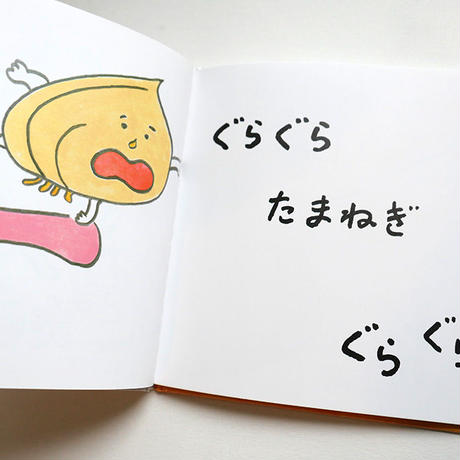 ぐらぐら
たまねぎ
ぐらぐら